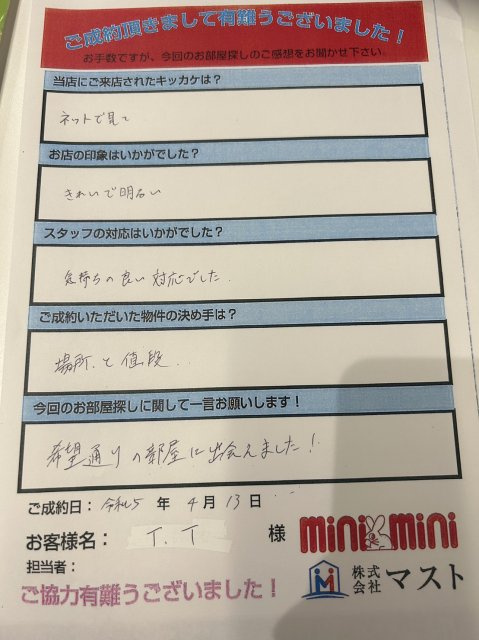 ご成約頂きまして有難うございました！
お手数ですが、今回のお部屋探しのご感想をお聞かせ下さい。
当店にご来店されたキッカケは？
ネットで見て
お店の印象はいかがでした？
きれいで明るい
スタッフの対応はいかがでした？
気持ちの良い対応でした.
ご成約いただいた物件の決め手は？
場所.と値段...
今回のお部屋探しに関して一言お願いします！
希望通りの部屋に出会えました！
ご成約日：令和5 年 4 月 13 日
お客様名： T. T 様
担当者：
ご協力有難うございました！
mini mini
株式会社 マスト